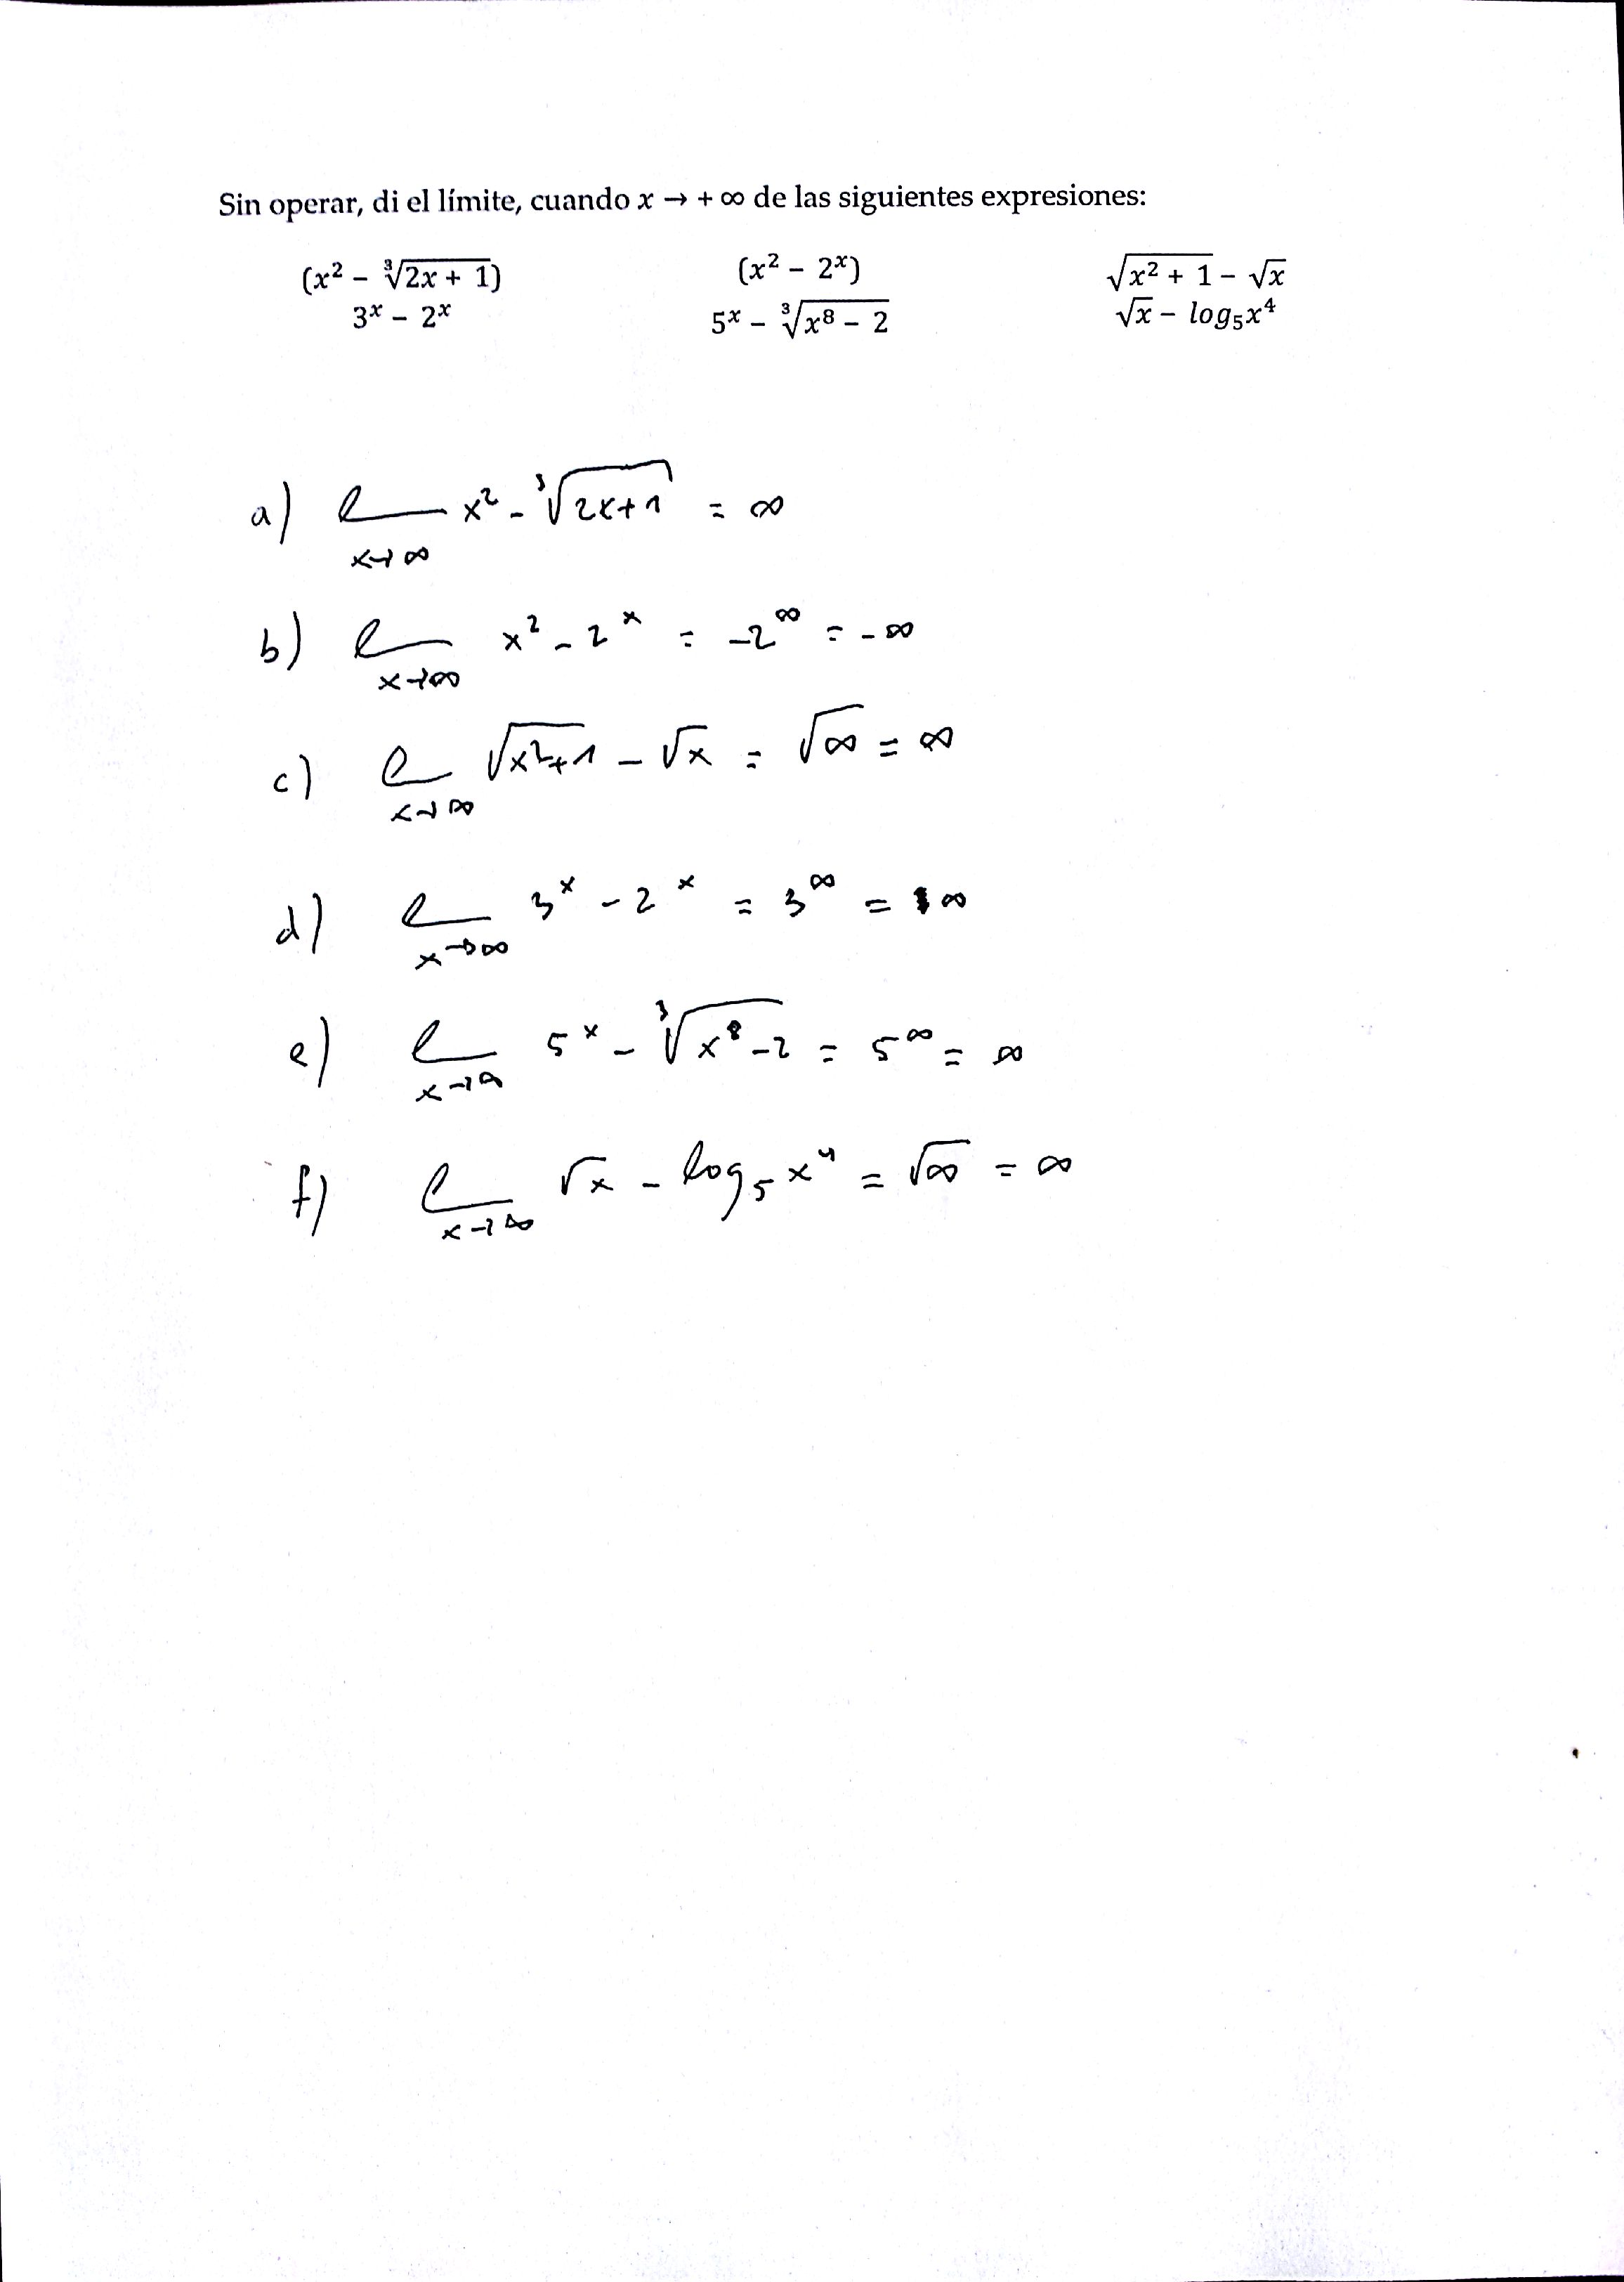 Sin operar, di el límite, cuando x → + ∞ de las siguientes expresiones:
(x² − ∛(2x + 1)) (x² − 2ˣ) √(x² + 1) − √x
3ˣ − 2ˣ 5ˣ − ∛(x⁸ − 2) √x − log₅x⁴
a) l x² − ∛(2x+1) = ∞
x→∞
b) l x² − 2ˣ = −2^∞ = −∞
x→∞
c) l √(x²+1) − √x = √∞ = ∞
x→∞
d) l 3ˣ − 2ˣ = 3^∞ = ∞
x→∞
e) l 5ˣ − ∛(x⁸−2) = 5^∞ = ∞
x→∞
f) l √x − log₅x⁴ = √∞ = ∞
x→∞